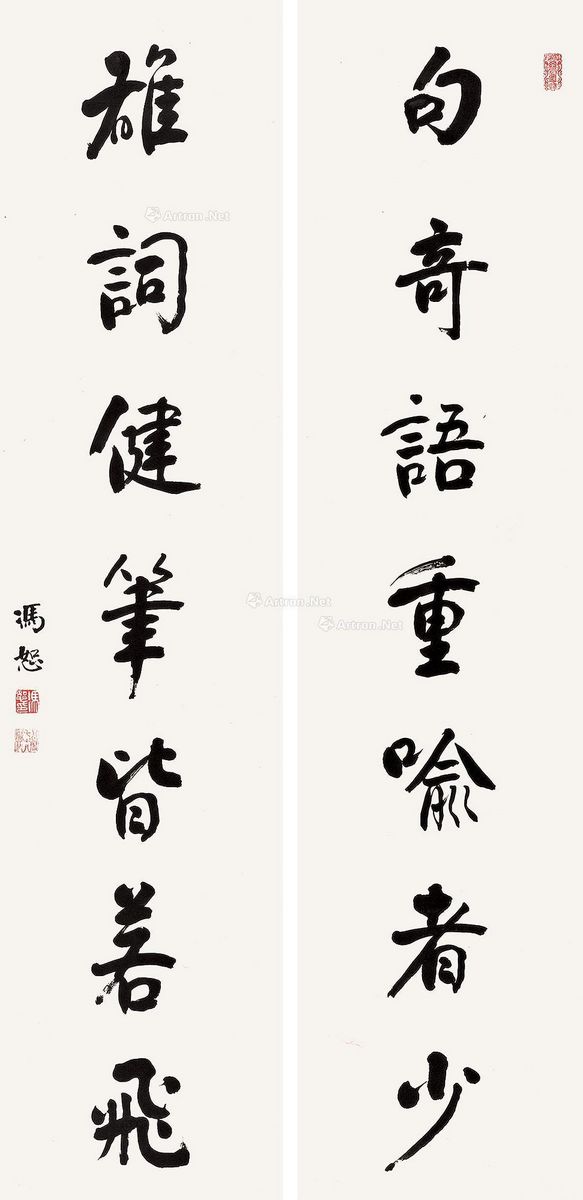 句奇語重喻者少
雄詞健筆皆若飛
馮恕
Artron.Net
Artron.Net
Artron.Net